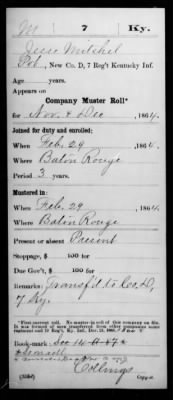 M | 7 | Ky.
Jesse Mitchel
Pvt., New Co. D, 7 Reg't Kentucky Inf.
Age years.
Appears on
Company Muster Roll*
for Nov & Dec, 1864.
Joined for duty and enrolled:
When Feb. 29, 1864.
Where Baton Rouge
Period 3 years.
Mustered in:
When Feb. 29, 1864.
Where Baton Rouge
Present or absent Present
Stoppage, $ 100 for
Due Gov't, $ 100 for
Remarks: Transf'd to Co. D,
7 Ky.
Book-mark:
Collings
Copyist.